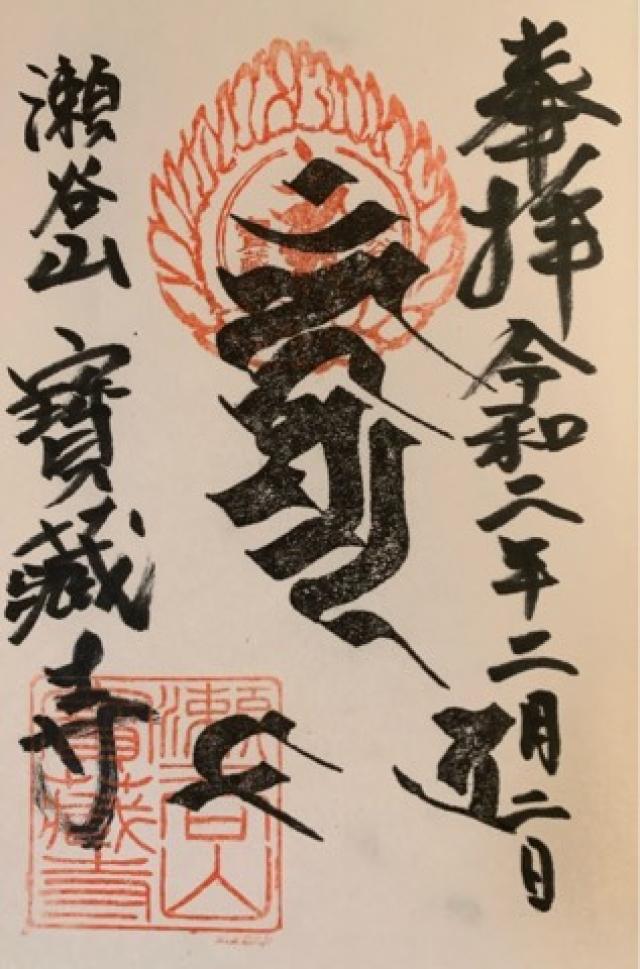 奉拝
令和二年二月二日
瀬谷山 寶藏寺
瀬谷山
寶藏寺